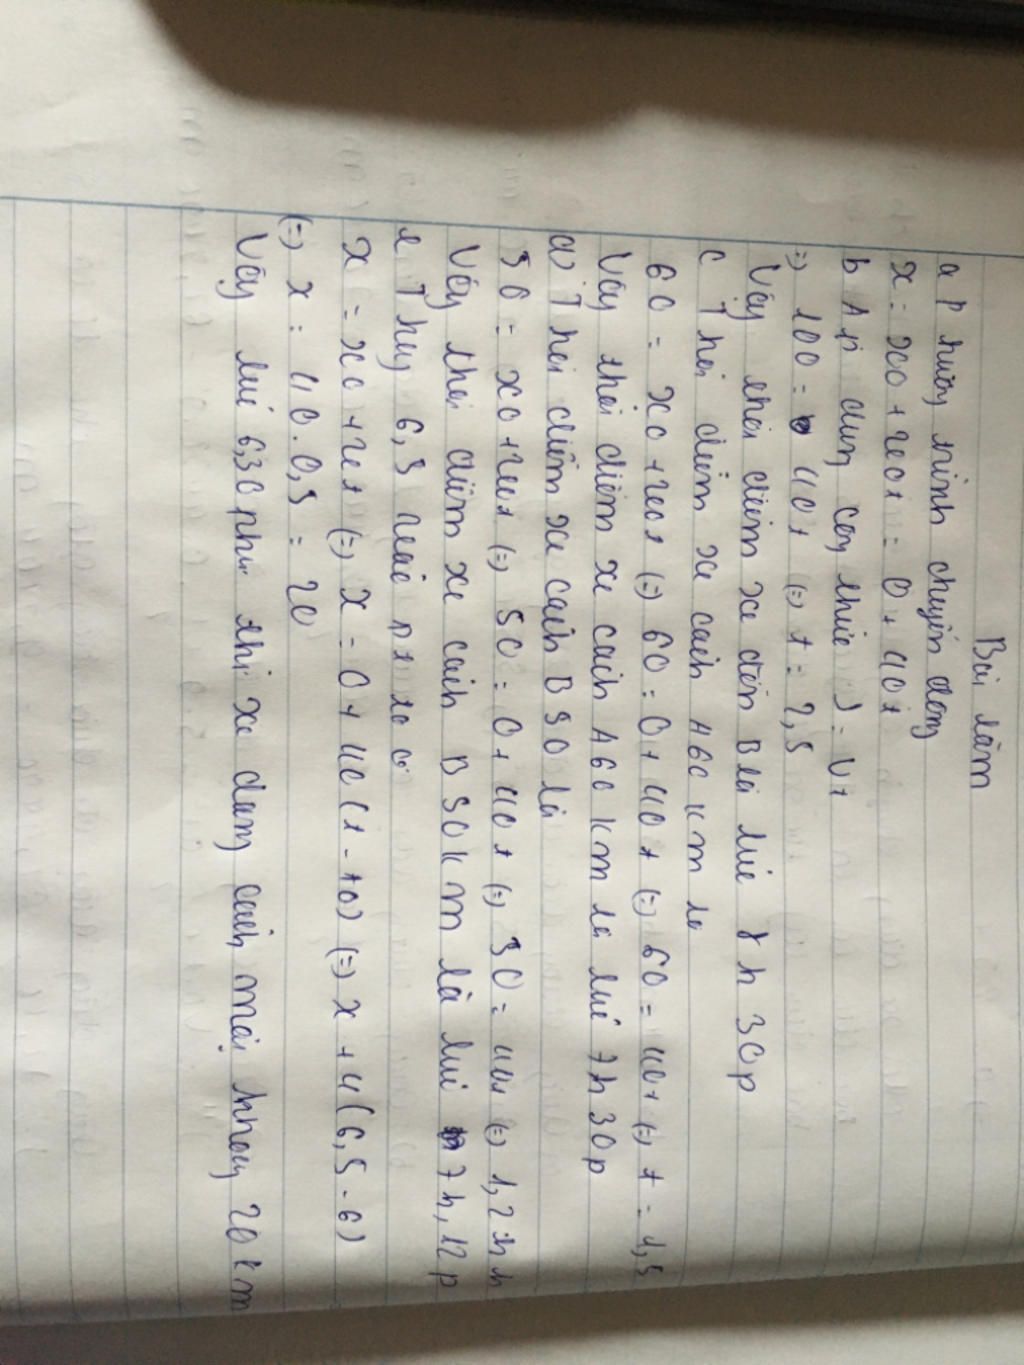 Bài làm
a Phương trình chuyển động
x = x0 + v0t = 0 + 40t
b Áp dụng công thức S = vt
=> 100 = 40t (=) t = 2,5
Vậy thời điểm xe đến B là lúc 8h 30p
c Thời điểm xe cách A 60 km là
60 = x0 + v0t (=) 60 = 0 + 40t (=) 60 = 40t (=) t = 1,5
Vậy thời điểm xe cách A 60 km là lúc 7h 30p
d) Thời điểm xe cách B 50 là
50 = x0 + v0t (=) 50 = 0 + 40t (=) 50 = 40t (=) 1,2 h
Vậy thời điểm xe cách B 50 km là lúc 7h, 12p
e Thay 6,5 vào pt ta có
x = x0 + vt (=) x = 0 + 40 (t - t0) (=) x + 4 (6,5 - 6)
(=) x = 40.0,5 = 20
Vậy lúc 6,30 phút thì xe đang cách 20 km